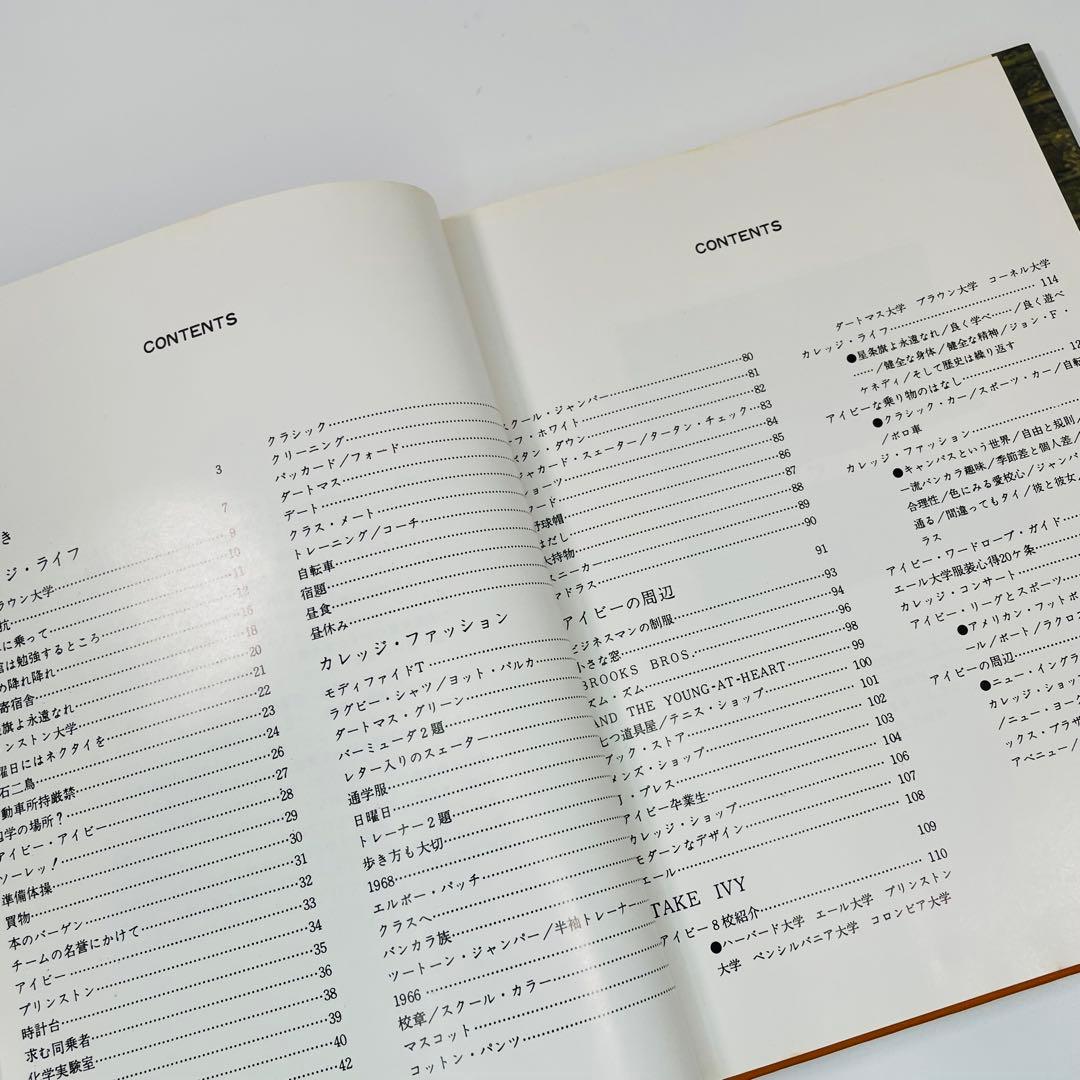 CONTENTS
3
き
7
ジ・ライフ
ラウン大学 9
抗 10
に乗って 11
宿は勉強するところ
め降れ降れ
寄宿舎 20
旗よ永遠なれ 21
ンストン大学 22
曜日にはネクタイを 23
石二鳥 24
動車所持厳禁 26
学の場所？ 27
アイビー・アイビー 28
ソーレッ！ 29
準備体操 30
買物 31
本のバーゲン 32
チームの名誉にかけて 33
アイビー 34
プリンストン 35
時計台 36
求む同乗者 38
化学実験室 39
40
42
クラシック
クリーニング
パッカード／フォード
ダートマス
デート
クラス・メート
トレーニング／コーチ
自転車
宿題
昼食
昼休み
カレッジ・ファッション
モディファイドT
ラグビー・シャツ／ヨット・パルカ
ダートマス・グリーン
バーミューダ2題
レター入りのスェーター
通学服
日曜日
トレーナー2題
歩き方も大切
1968
エルボー・パッチ
クラスへ
バンカラ族
ツートーン・ジャンパー／半袖トレーナー
1966
校章／スクール・カラー
マスコット
コットン・パンツ
CONTENTS
クール・ジャンパー 80
フ・ホワイト 81
タン・ダウン 82
ジャカード・スェーター／タータン・チェック 83
ョーツ 84
ード 85
野球帽 86
はだし 87
大持物 88
スニーカー 89
マドラス 90
アイビーの周辺 91
ビジネスマンの制服 93
小さな窓 94
BROOKS BROS. 96
ズム・ズム 98
AND THE YOUNG-AT-HEART 99
七つ道具屋／テニス・ショップ 100
ブック・ストア 101
メンズ・ショップ 102
J・プレス 103
アイビー卒業生 104
カレッジ・ショップ 106
モダーンなデザイン 107
エール 108
TAKE IVY 109
アイビー8校紹介 110
●ハーバード大学 エール大学 プリンストン
大学 ペンシルバニア大学 コロンビア大学
ダートマス大学 ブラウン大学 コーネル大学
カレッジ・ライフ 114
●星条旗よ永遠なれ／良く学べ……／良く遊べ
……／健全な身体／健全な精神／ジョン・F・
ケネディ／そして歴史は繰り返す
アイビーな乗り物のはなし 12
●クラシック・カー／スポーツ・カー／自転
／ボロ車
カレッジ・ファッション
●キャンパスという世界／自由と規則／
一流バンカラ趣味／季節差と個人差／
合理性／色にみる愛校心／ジャンパ
通る／間違ってもタイ／彼と彼女
ラス
アイビー・ワードローブ・ガイド
エール大学服装心得20ヶ条
カレッジ・コンサート
アイビー・リーグとスポーツ
●アメリカン・フットボ
ール／ボート／ラクロ
アイビーの周辺
●ニュー・イングラ
カレッジ・ショッ
／ニュー・ヨー
ックス・ブラザ
アベニュー／